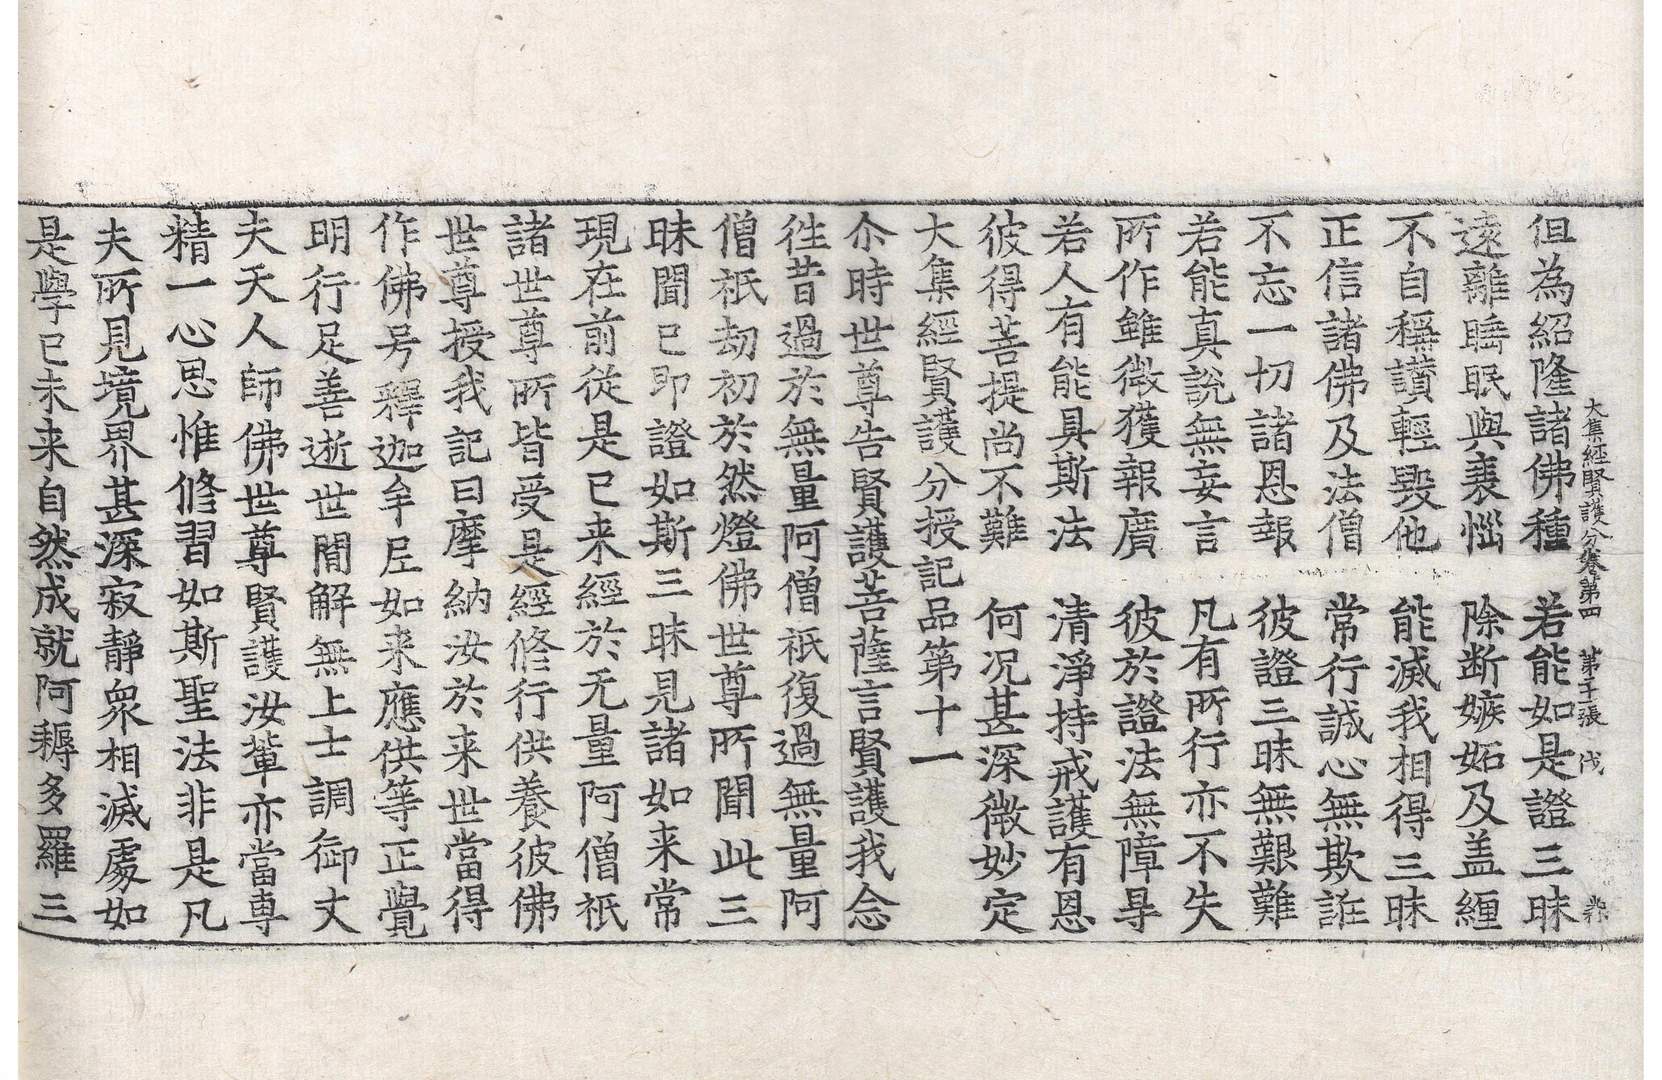 大集経賢護分卷第四　第十張　伐
但為紹隆諸佛種　若能如是證三昧
遠離睡眠與裹惱　除断嫉妬及盖纏
不自稱讃輕毀他　能滅我相得三昧
正信諸佛及法僧　常行誠心無欺誑
不忘一切諸恩報　彼證三昧無艱難
若能真說無妄言　凡有所行亦不失
所作雖微獲報廣　彼於證法無障㝵
若人有能具斯法　清淨持戒護有恩
彼得菩提尚不難　何况甚深微妙定
大集經賢護分授記品第十一
尒時世尊告賢護菩薩言賢護我念
徃昔過於無量阿僧祇復過無量阿
僧祇劫初於然燈佛世尊所聞此三
昧聞已即證如斯三昧見諸如来常
現在前從是已来經於无量阿僧祇
諸世尊所皆受是經修行供養彼佛
世尊授我記曰摩納汝於来世當得
作佛号釋迦牟尼如来應供等正覺
明行足善逝世間解無上士調御丈
夫天人師佛世尊賢護汝輩亦當専
精一心思惟修習如斯聖法非是凡
夫所見境界甚深寂靜衆相滅處如
是學已未来自然成就阿耨多羅三